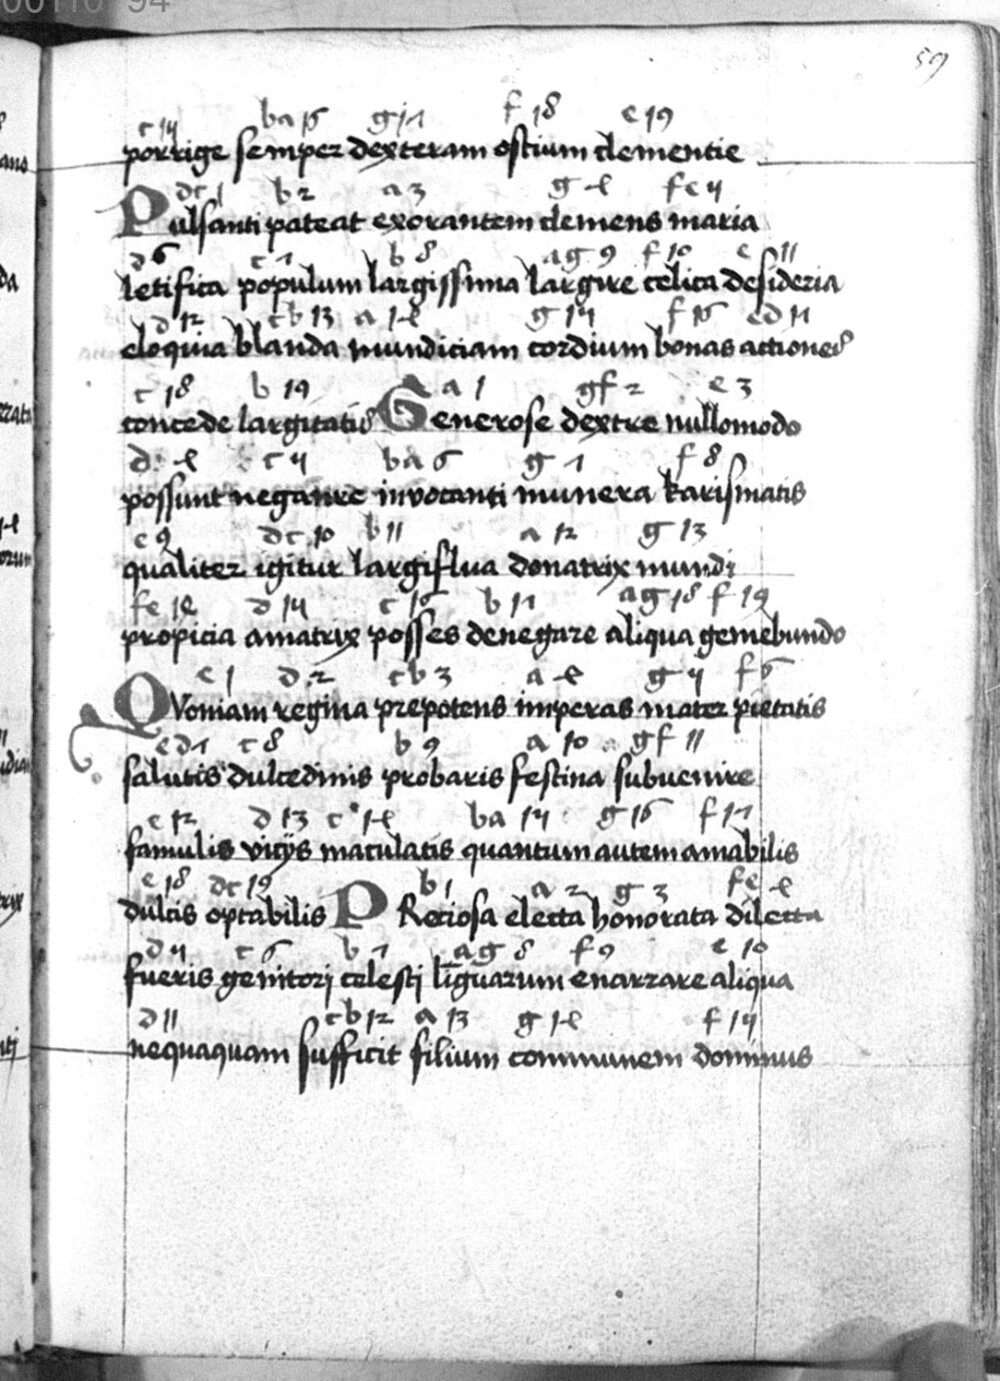 59
c 14 ba 16 g 17 f 18 e 19
porrige semper dexteram ostium clementie
dc 1 b 2 a 3 g 4 fe 5
Pulsanti pateat exorantem clemens maria
d 6 c 7 b 8 ag 9 f 10 e 11
letifica populum largissima largire celica desideria
d 12 cb 13 a 14 g 15 f 16 ed 17
eloquia blanda mundiciam cordium bonas actiones
c 18 b 19 a 1 gf 2 e 3
concede largitatis Generose dextre nullomodo
d 4 c 5 ba 6 g 7 f 8
possunt negare invocanti munera karismatis
e 9 dc 10 b 11 a 12 g 13
qualiter igitur largiflua donatrix mundi
fe 14 d 15 c 16 b 17 ag 18 f 19
propicia amatrix posses denegare aliqua gemebundo
e 1 d 2 cb 3 a 4 g 5 f 6
QVoniam regina prepotens imperas mater pietatis
ed 7 c 8 b 9 a 10 gf 11
salutis dulcedinis probaris festina subuenire
e 12 d 13 c 14 ba 15 g 16 f 17
famulis vicijs maculatis quantum autem amabilis
e 18 dc 19 b 1 a 2 g 3 fe 4
dulcis optabilis PReciosa electa honorata dilecta
d 5 c 6 b 7 ag 8 f 9 e 10
fueris genitori celesti liguarum enarrare aliqua
d 11 cb 12 a 13 g 14 f 15
nequaquam sufficit filium communem dominus